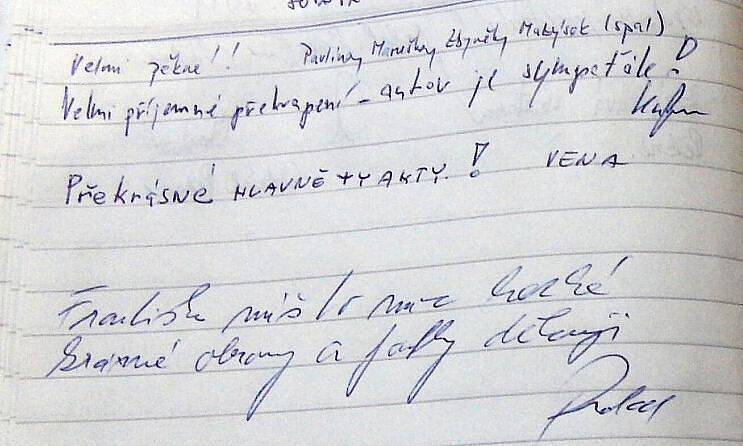 Velmi pěkné!! Pavlínky Marušky Zbyňky Matýsek (spal)
Velmi příjemné překvapení - autor je sympaťák!
PřEkrásNé HLAVNĚ TY AKTY! VENA
Františku máš to moc hezké
krásné obrazy a fotky děkuji